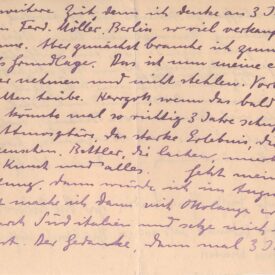 weitere Zeit denn ich denke an 3 J
n Ferd. Möller, Berlin so viel verkauf
me. Aber zunächst brauche ich zum
s Grundlage. Das ist nun meine e
er nehmen und nicht stehlen. Vor
tentaube. Herrgott wenn das bald
könnte mal so richtig 3 Jahre sch
Atmosphäre, das starke Erlebnis, di
enschen. Bettler, die lachen,
Kunst und alles. Jetzt mein
ung, dann würde ich im Aug
t mache ich dann mit Ottolange e
urch Süditalien und setze mich
st. Der Gedanke, dann mal 3 J